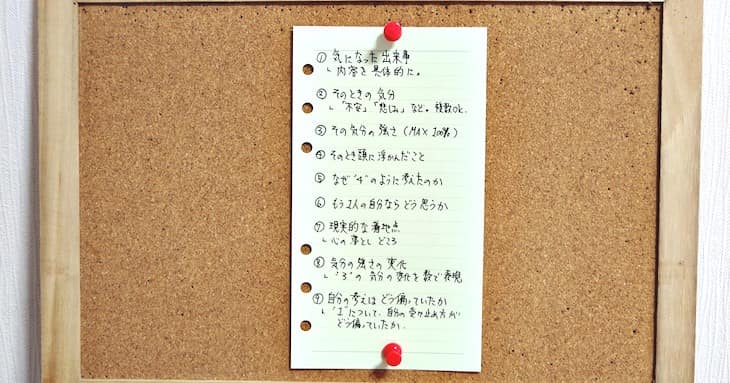 ① 気になった出来事
↳ 内容を具体的に。
② そのときの気分
↳「不安」「悲しみ」など。複数OK。
③ その気分の強さ (MAX 100%)
④ そのとき頭に浮かんだこと
⑤ なぜ"4"のように考えたのか
⑥ もう1人の自分なら どう思うか
⑦ 現実的な着地点
↳ 心の落としどころ
⑧ 気分の強さの変化
↳ "3"の 気分の変化を数で表現
⑨ 自分の考えは どう偏っていたか
↳ "1"について、自分の受け止め方が
どう偏っていたか.